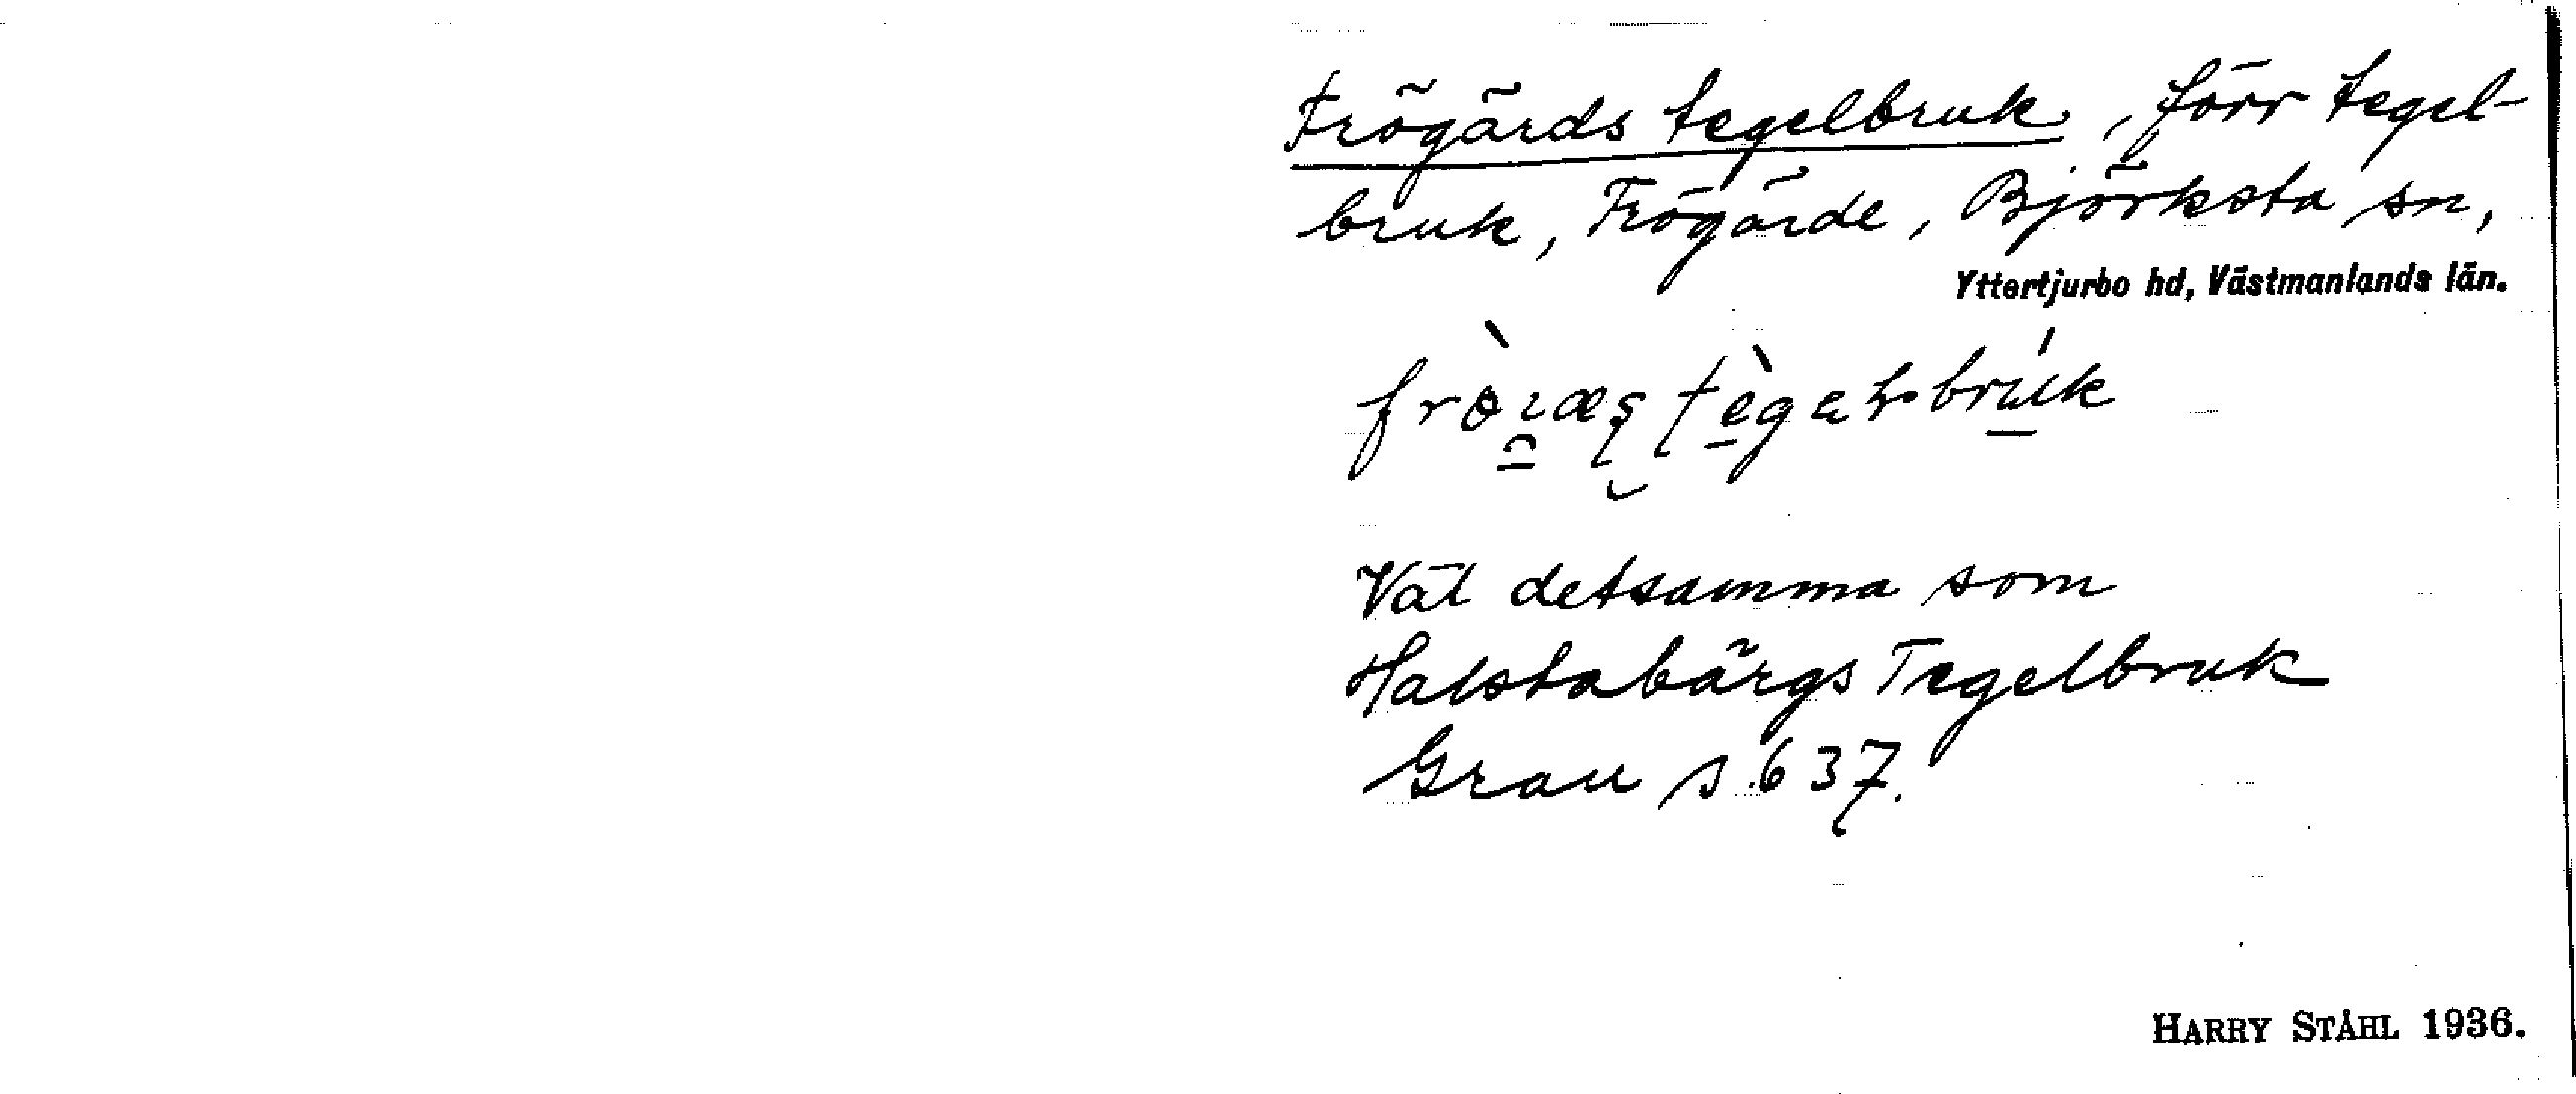 Frögärds tegelbruk, förr tegel-
bruk, Frögärde, Björksta sn,
Yttertjurbo hd, Västmanlands län.
Väl detsamma som
Halstabärgs Tegelbruk
Grau s 637.
HARRY STÅHL 1936.